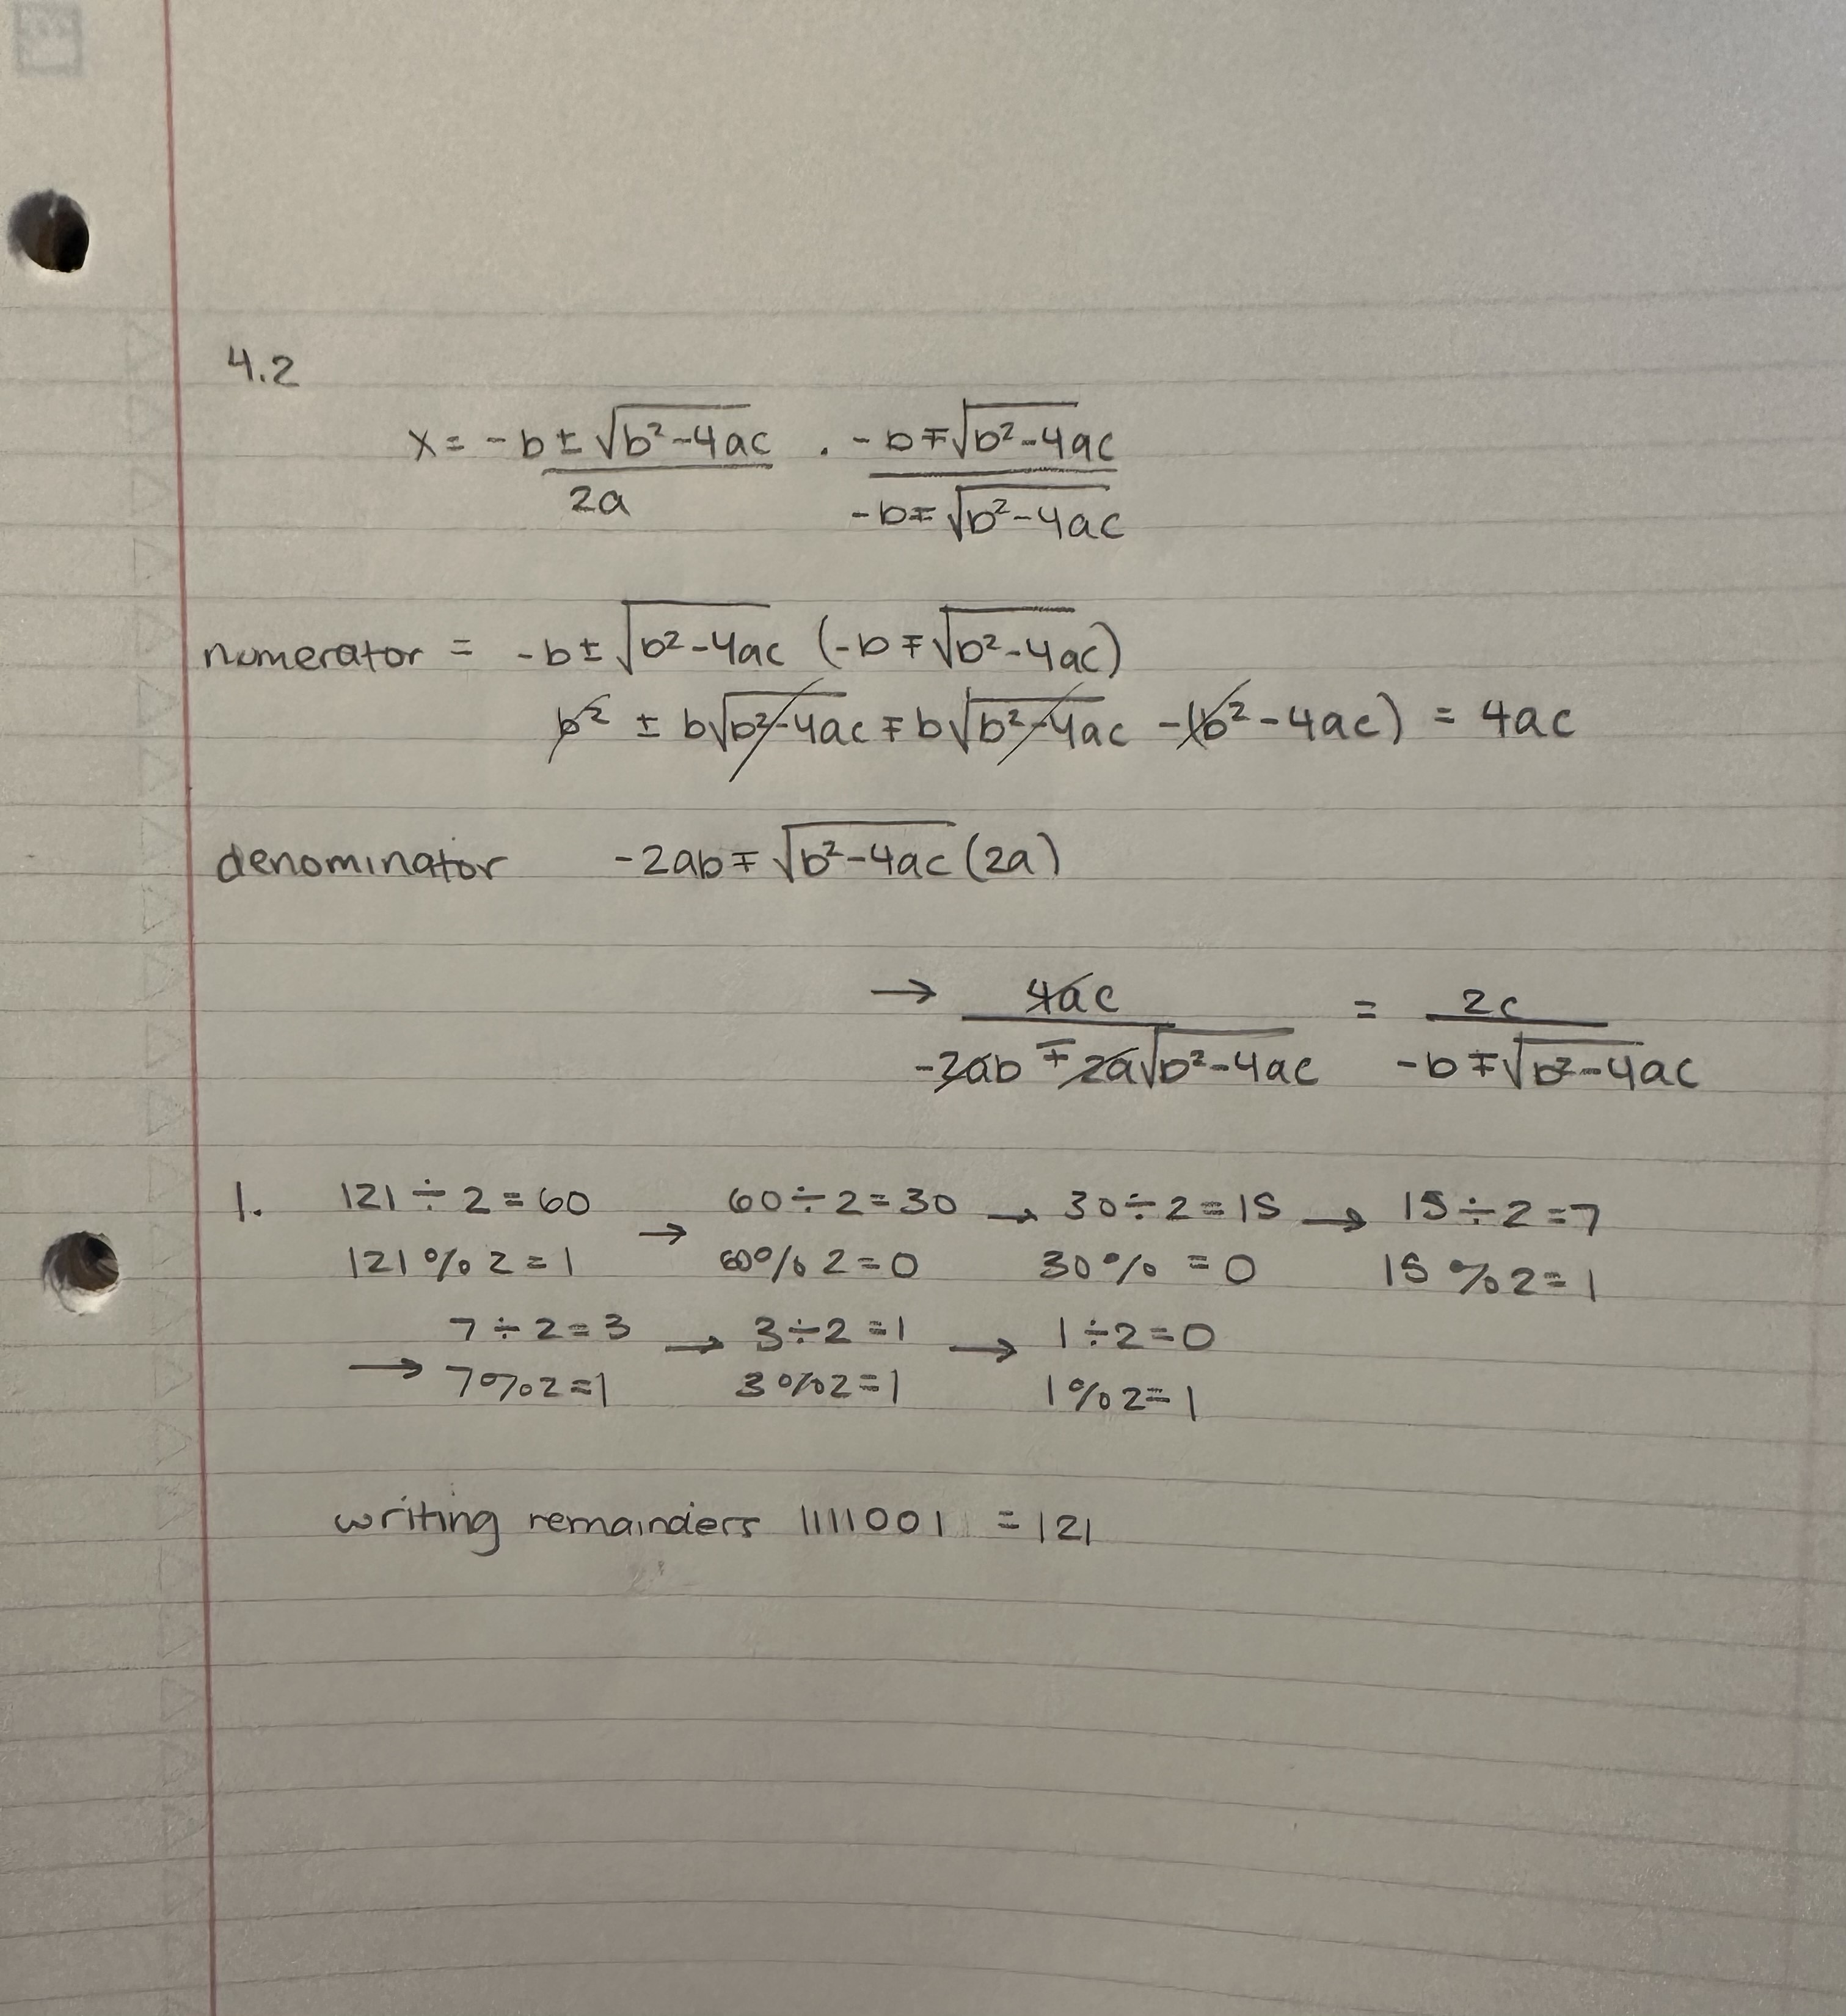 4.2
x = -b ± √(b² - 4ac) / 2a · -b ∓ √(b² - 4ac) / -b ∓ √(b² - 4ac)
numerator = -b ± √(b² - 4ac) (-b ∓ √(b² - 4ac))
b² ± b√(b² - 4ac) ∓ b√(b² - 4ac) - (b² - 4ac) = 4ac
denominator -2ab ∓ √(b² - 4ac) (2a)
→ 4ac / -2ab ∓ 2a√(b² - 4ac) = 2c / -b ∓ √(b² - 4ac)
1. 121 ÷ 2 = 60 → 60 ÷ 2 = 30 → 30 ÷ 2 = 15 → 15 ÷ 2 = 7
121 % 2 = 1 60 % 2 = 0 30 % = 0 15 % 2 = 1
→ 7 ÷ 2 = 3 → 3 ÷ 2 = 1 → 1 ÷ 2 = 0
7 % 2 = 1 3 % 2 = 1 1 % 2 = 1
writing remainders 1111001 = 121